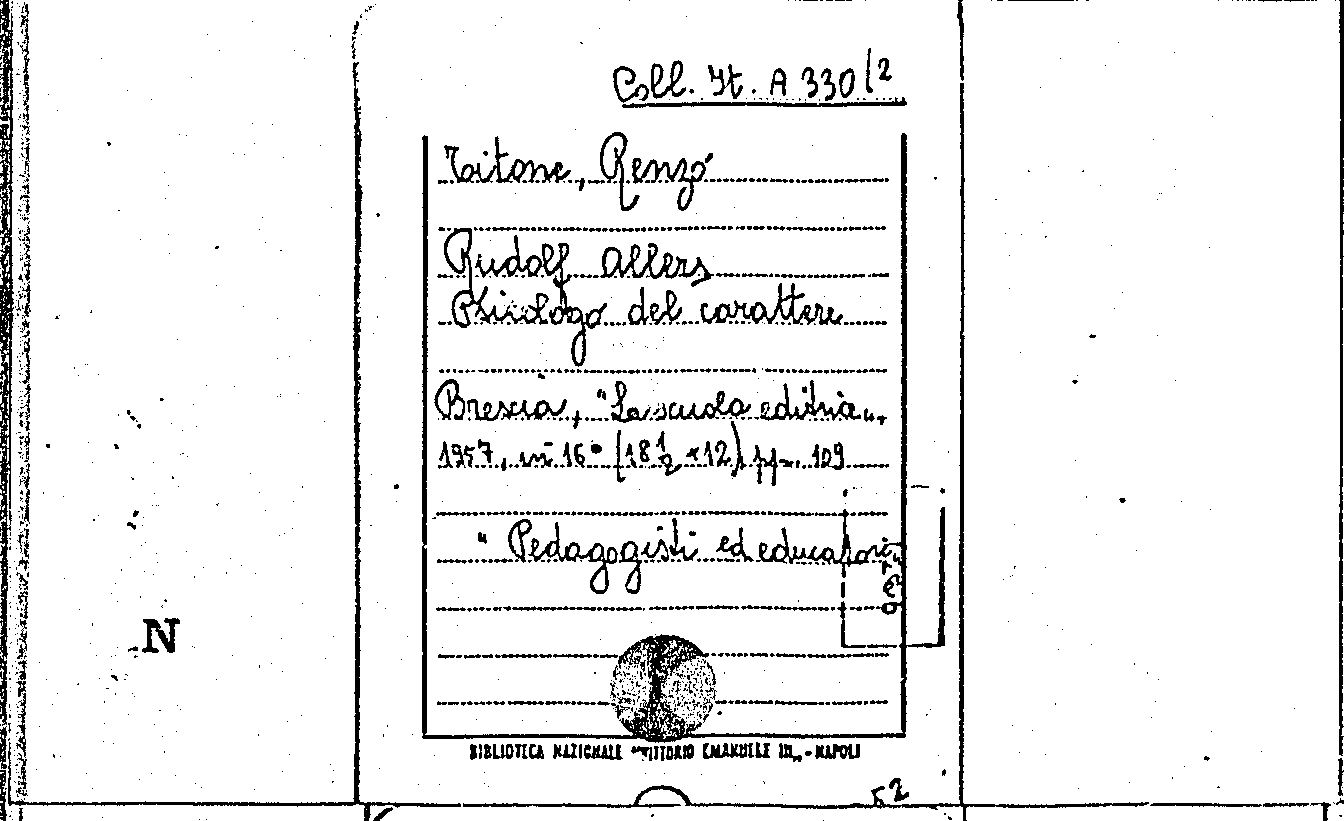 Coll. It. A 330/2
Titone, Renzo
Rudolf Allers
Psicologo del carattere
Brescia, "La scuola editrice„,
1957, in 16° (18½ x 12) pp. 109
"Pedagogisti ed educatori„
N
BIBLIOTECA NAZIONALE "VITTORIO EMANUELE III„ - NAPOLI
52